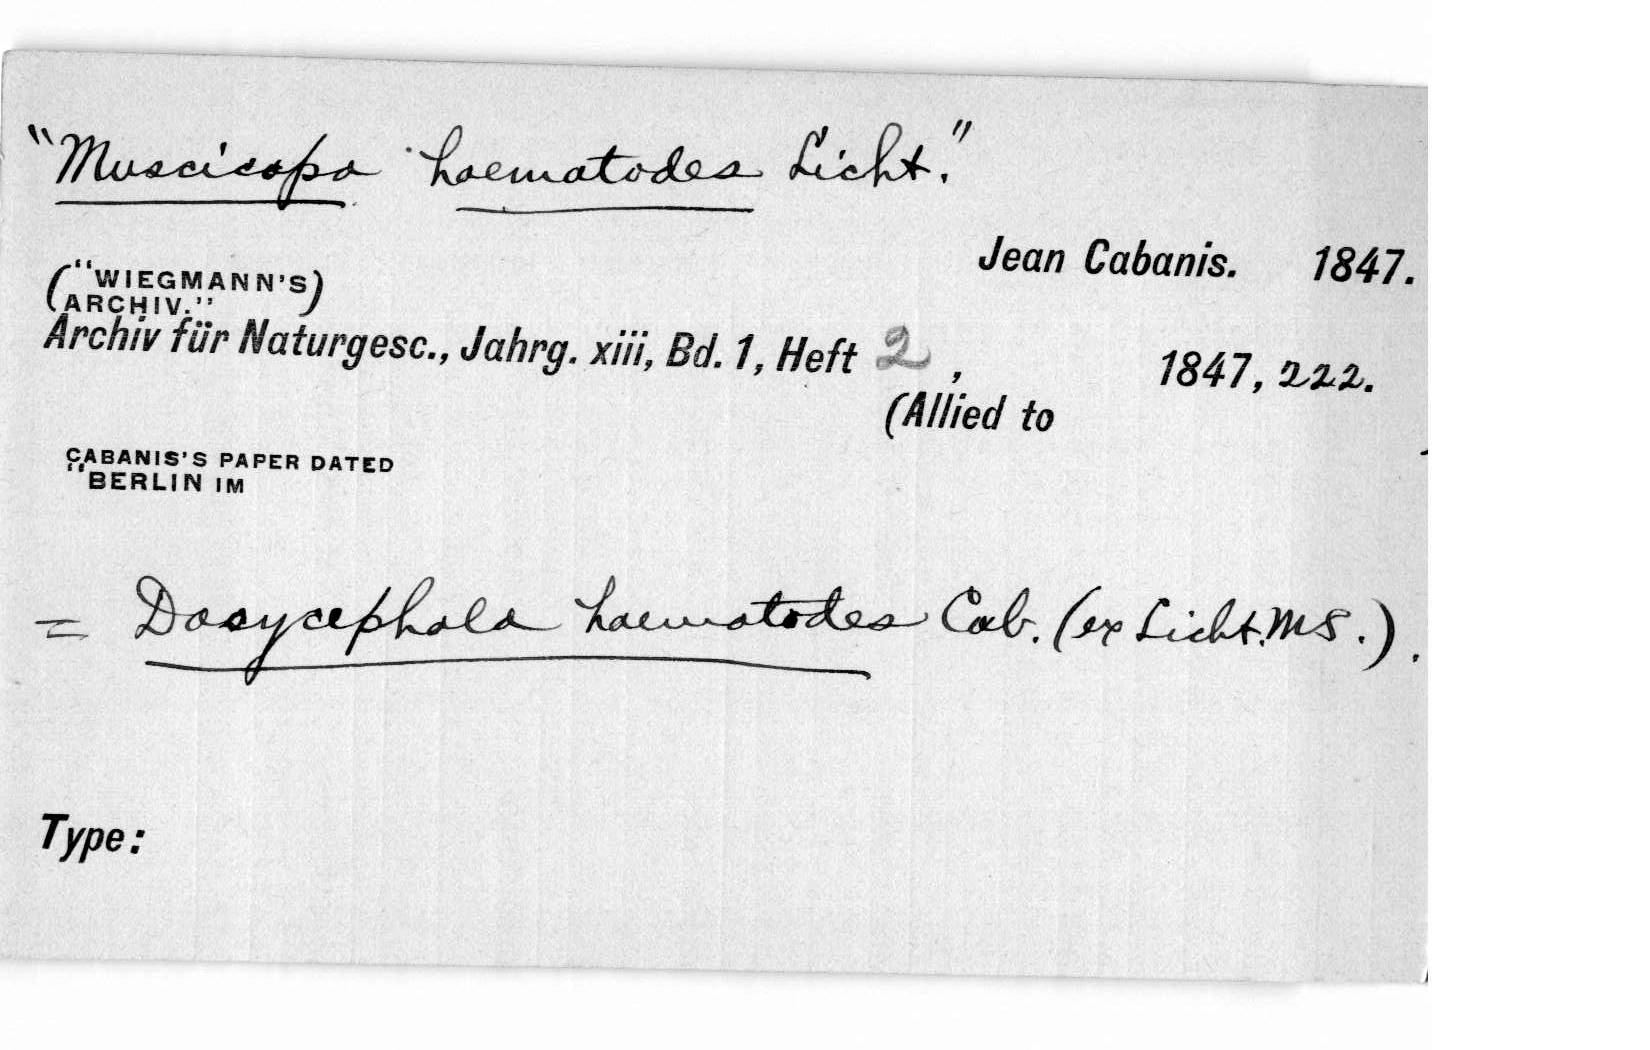 "Muscicapa haematodes Licht."
Jean Cabanis. 1847.
("WIEGMANN'S)
(ARCHIV."
Archiv für Naturgesc., Jahrg. xiii, Bd. 1, Heft 2, 1847, 222.
(Allied to
CABANIS'S PAPER DATED
"BERLIN IM
= Dasycephala haematodes Cab. (ex Licht. MS.).
Type: